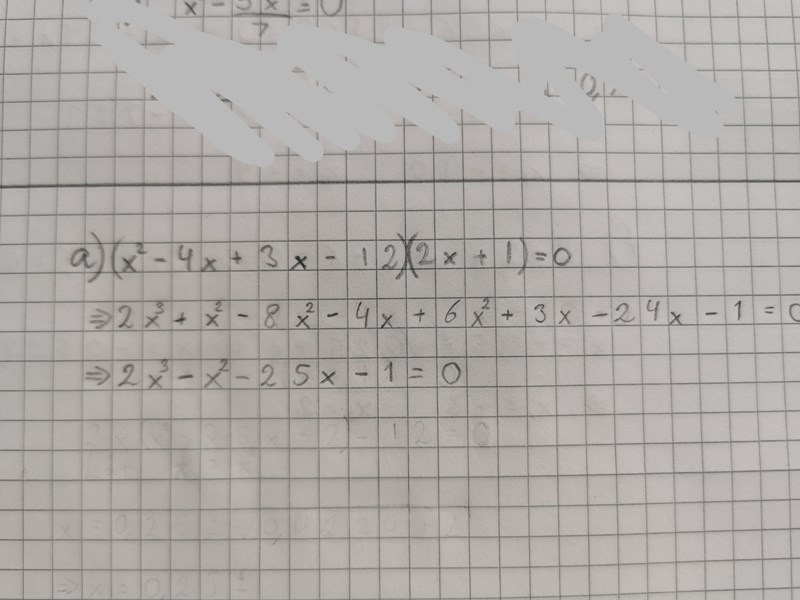 x - 5x/7 = 0
a) (x² - 4x + 3x - 12)(2x + 1) = 0
⇒ 2x³ + x² - 8x² - 4x + 6x² + 3x - 24x - 1 = 0
⇒ 2x³ - x² - 25x - 1 = 0